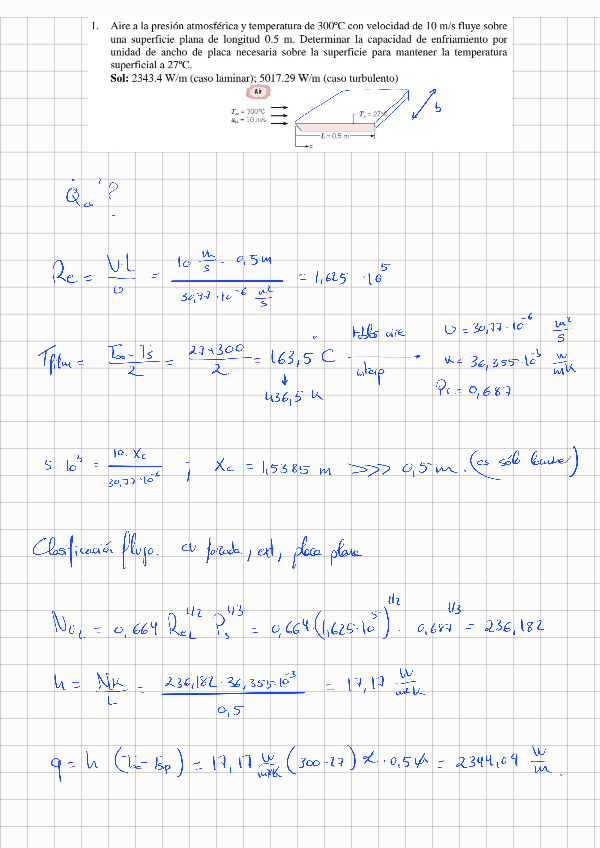 1. Aire a la presión atmosférica y temperatura de 300ºC con velocidad de 10 m/s fluye sobre
una superficie plana de longitud 0.5 m. Determinar la capacidad de enfriamiento por
unidad de ancho de placa necesaria sobre la superficie para mantener la temperatura
superficial a 27ºC.
Sol: 2343.4 W/m (caso laminar); 5017.29 W/m (caso turbulento)
Air
T∞ = 300°C
u∞ = 10 m/s
Ts = 27°C
b
L = 0.5 m
x
Re = U·L / υ = 10 m/s · 0,5 m / 30,77·10^-6 m²/s = 1,625 · 10^5
Tfilm = T∞ - Ts / 2 = 27+300 / 2 = 163,5 °C
tabla aire
interp
436,5 K
υ = 30,77·10^-6 m²/s
k = 36,355·10^-3 W/mK
Pr = 0,687
5·10^5 = 10·Xc / 30,77·10^-6 ; Xc = 1,5385 m >>> 0,5 m. (es sólo laminar)
Clasificación flujo. cv forzada, ext, placa plana
NuL = 0,664 ReL^1/2 Pr^1/3 = 0,664·(1,625·10^5)^1/2 · 0,687^1/3 = 236,182
h = Nk / L = 236,182·36,355·10^-3 / 0,5 = 17,17 W/m²K
q = h (T∞ - Tsp) = 17,17 W/m²K (300-27) K · 0,5 m = 2344,04 W/m.